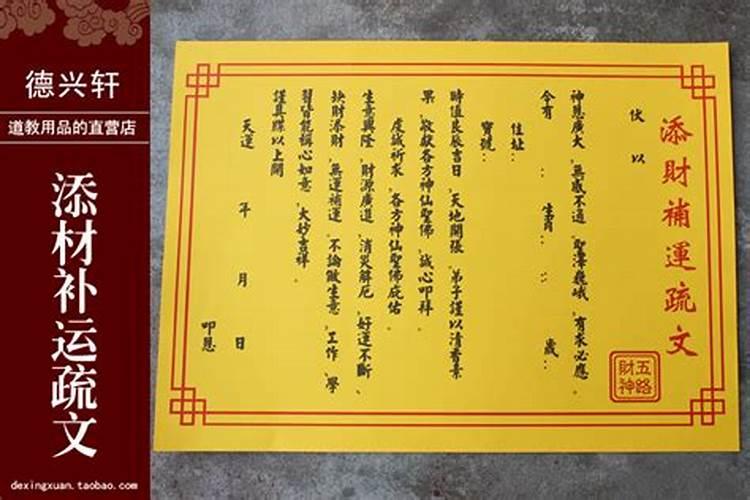 德兴轩
道教用品的直营店
添材补运疏文
dexingxuan.taobao.com
添財補運疏文
五路
財神
伏以
神恩廣大、無感不通、聖澤巍峨、有求必應。
今有 : 生肖 : : 歲、
住址:
寶號:
時值良辰吉日、天地開張、弟子謹以清香素
果、敬獻各方神仙聖佛、誠心叩拜。
虔誠祈求、各方神仙聖佛庇佑。
生意興隆、財源廣進、消災解厄、好運不斷、
缺財添財、無運補運、不論做生意、工作、學
習皆能稱心如意、大妙吉祥。
謹具牒以上聞
天運 年 月 日 叩恩